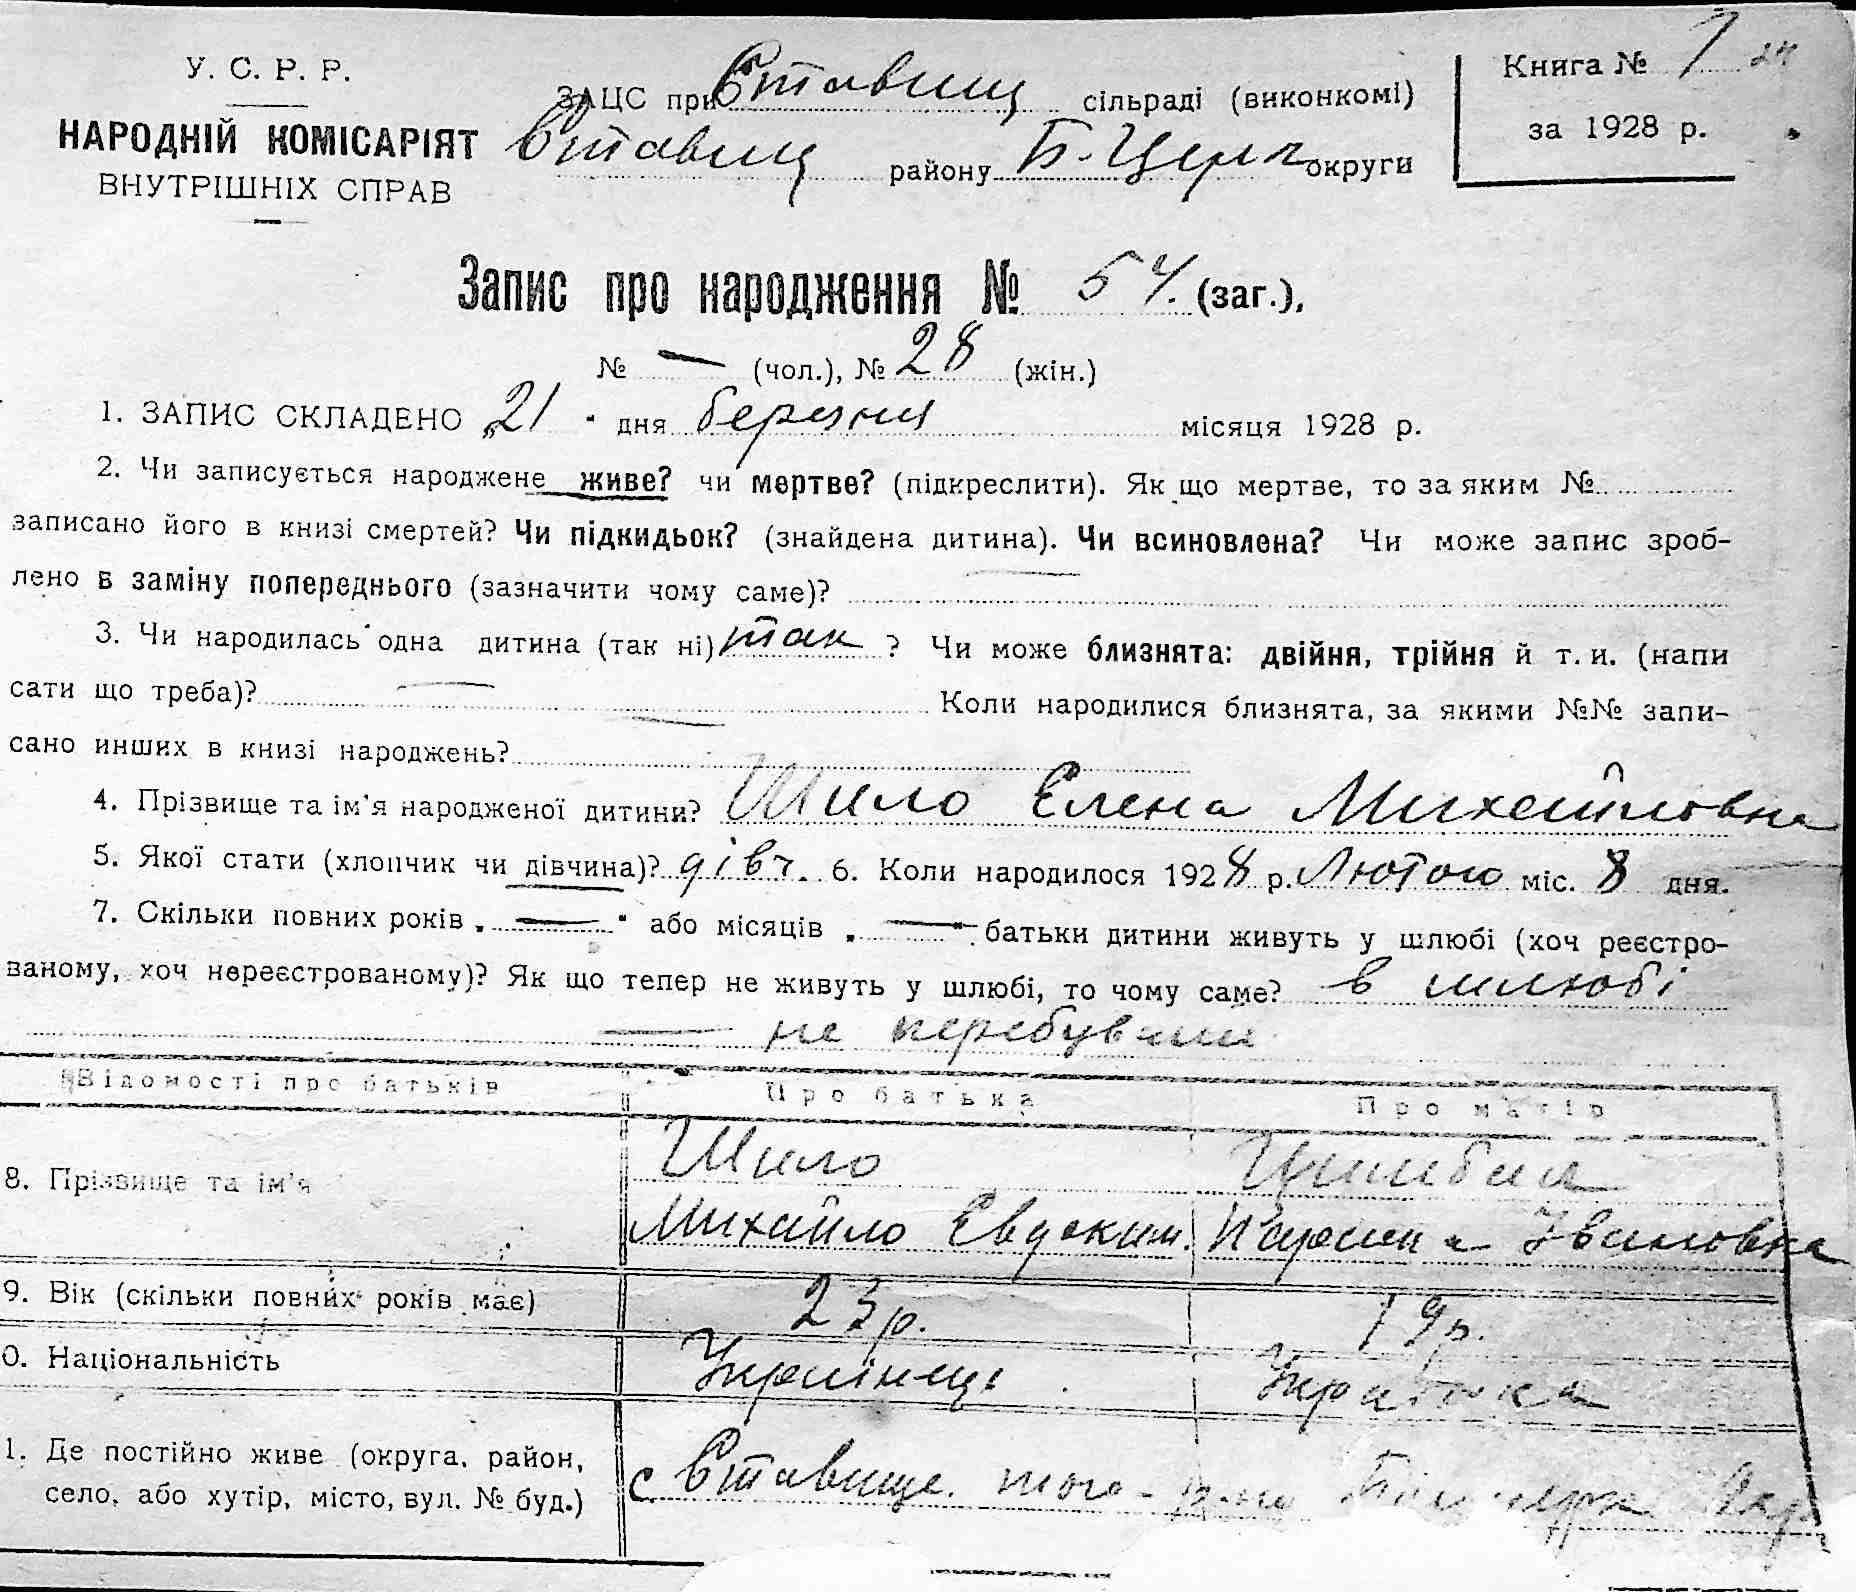 У. С. Р. Р.
НАРОДНІЙ КОМІСАРІЯТ
ВНУТРІШНІХ СПРАВ
ЗАЦС при Ставищ сільраді (виконкомі)
Ставищ району Б-Церк округи
Книга №
за 1928 р.
Запис про народження № 54. (заг.),
№ — (чол.), № 28 (жін.)
1. ЗАПИС СКЛАДЕНО „21" дня березня місяця 1928 р.
2. Чи записується народжене живе? чи мертве? (підкреслити). Як що мертве, то за яким №
записано його в книзі смертей? Чи підкидьок? (знайдена дитина). Чи всиновлена? Чи може запис зроб-
лено в заміну попереднього (зазначити чому саме)?
3. Чи народилась одна дитина (так ні) так ? Чи може близнята: двійня, трійня й т. и. (напи
сати що треба)? — Коли народилися близнята, за якими №№ запи-
сано инших в книзі народжень?
4. Прізвище та ім'я народженої дитини? Шило Елена Михайловна
5. Якої стати (хлопчик чи дівчина)? дівч. 6. Коли народилося 1928 р. Лютого міс. 8 дня.
7. Скільки повних років „ — " або місяців „ — " батьки дитини живуть у шлюбі (хоч реєстро-
ваному, хоч нереєстрованому)? Як що тепер не живуть у шлюбі, то чому саме? в шлюбі
— не перебували
Відомості про батьків Про батька Про матір
8. Прізвище та ім'я Шило Цимбал
Михайло Евдоким. Ивановка
9. Вік (скільки повних років має) 23 р. 19 р.
0. Національність Українець Українка
1. Де постійно живе (округа, район,
село, або хутір, місто, вул. № буд.) с Ставище. того- р-ну